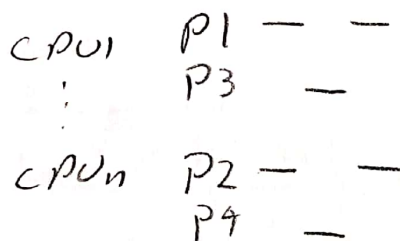 CPU1 P1 — —
P3 —
⋮
CPUn P2 — —
P4 —